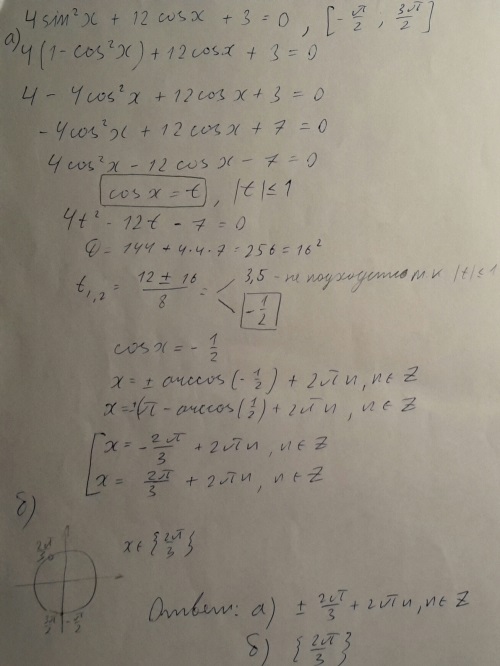 4sin²x + 12cosx + 3 = 0 , [-π/2 , 3π/2]
а) 4(1-cos²x) + 12cosx + 3 = 0
4 - 4cos²x + 12cosx + 3 = 0
-4cos²x + 12cosx + 7 = 0
4cos²x - 12cosx - 7 = 0
cosx = t , |t| ≤ 1
4t² - 12t - 7 = 0
D = 144 + 4·4·7 = 256 = 16²
t₁,₂ = (12 ± 16)/8 = 3,5 - не подходит т.к |t| ≤ 1
-1/2
cosx = -1/2
x = ± arccos(-1/2) + 2πn, n ∈ Z
x = ±(π - arccos(1/2) + 2πn, n ∈ Z
[ x = -2π/3 + 2πn, n ∈ Z
x = 2π/3 + 2πn, n ∈ Z
б)
2π/3
x ∈ {2π/3}
3π/2 -π/2
Ответ: а) ± 2π/3 + 2πn, n ∈ Z
б) {2π/3}